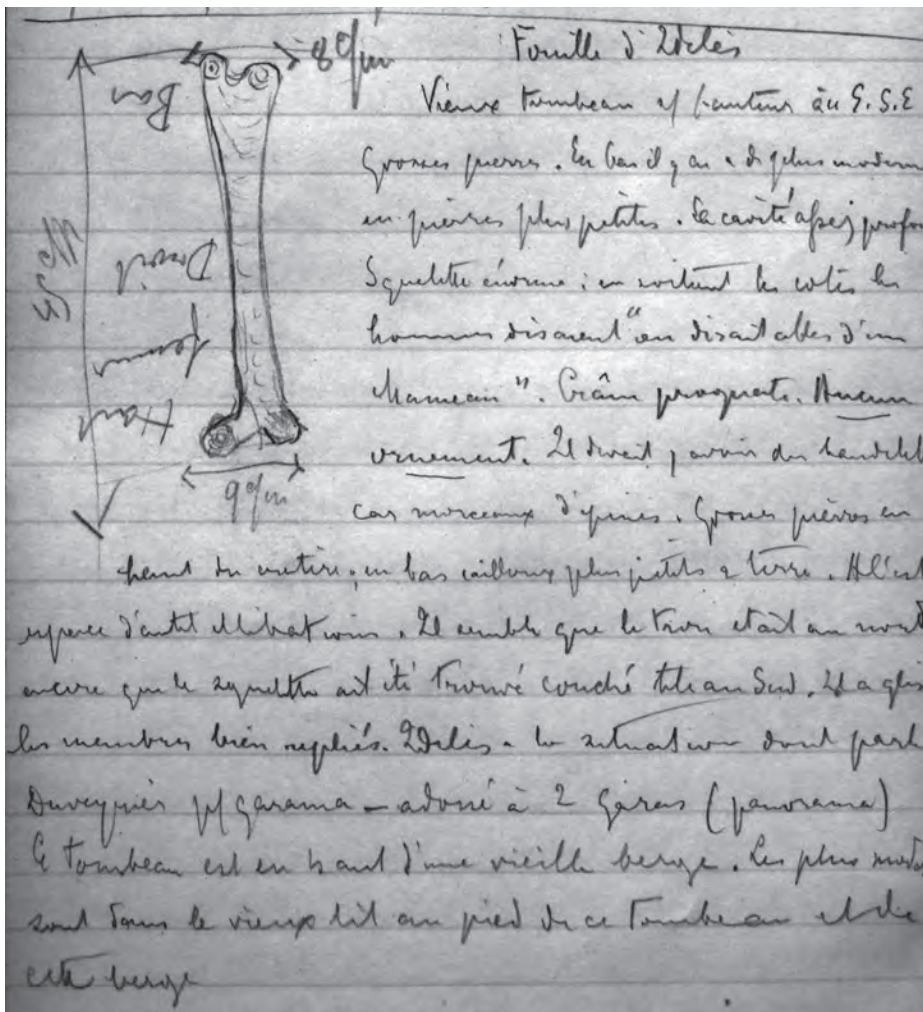 8 c/m
Bas
Droit
femur
Haut
9 c/m
Fouille d'Idelès
Vieux tombeau s/ hauteur au S.S.E
Grosses pierres. En bas il y en a de plus modern
en pierres plus petites. La cavité assez profon
Squelette énorme ; en sortant les côtes les
hommes disaient "on dirait celles d'un
Chameau". Crâne prognate. Aucun
ornement. Il devait y avoir des bandelet
car morceaux d'. Grosses pierres en
haut du ; en bas cailloux plus petits & terre. A l'est
espece d'autel libations. Il semble que le trou etait au nord
encore que le squelette ait été trouvé couché tête au Sud. Il a
les membres bien repliés. Idelès a la situation dont parle
Duveyrier p/ garama – adossé à 2 garas (panorama)
Ce tombeau est en haut d'une vieille berge. Les plus mod
sont dans le vieux lit au pied de ce tombeau et de
cette berge